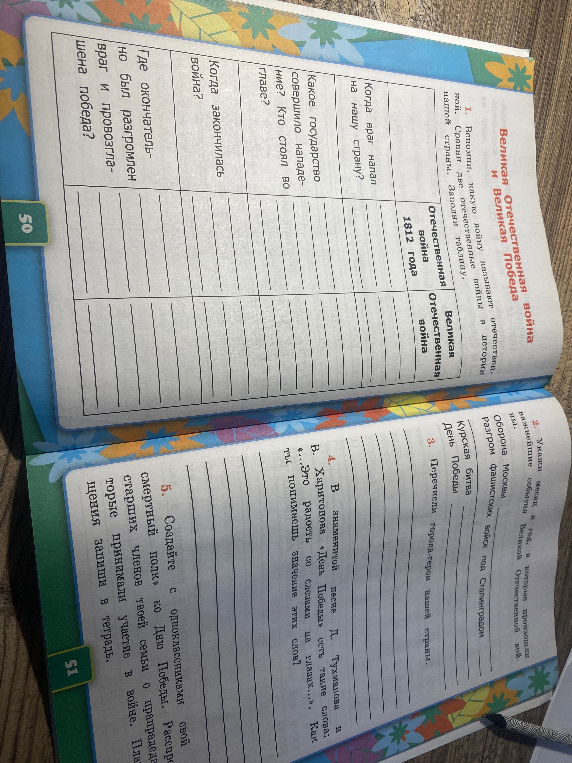 Великая Отечественная война
и Великая Победа
1. Вспомни, какую войну называют отечествен-
ной. Сравни две отечественные войны в истории
нашей страны. Заполни таблицу.
Отечественная
война
1812 года
Великая
Отечественная
война
Когда враг напал
на нашу страну?
Какое государство
совершило нападе-
ние? Кто стоял во
главе?
Когда закончилась
война?
Где окончатель-
но был разгромлен
враг и провозгла-
шена победа?
50
2. Укажи месяц и год, в которые произошли
важнейшие события Великой Отечественной вой-
ны.
Оборона Москвы
Разгром фашистских войск под Сталинградом
Курская битва
День Победы
3. Перечисли города-герои нашей страны.
4. В знаменитой песне Д. Тухманова и
В. Харитонова «День Победы» есть такие слова:
«...Это радость со слезами на глазах...». Как
ты понимаешь значение этих слов?
5. Создайте с одноклассниками свой
смертный полк» ко Дню Победы. Расспро
старших членов твоей семьи о прапрадеда
торые принимали участие в войне. Пла
щения запиши в тетрадь.
51